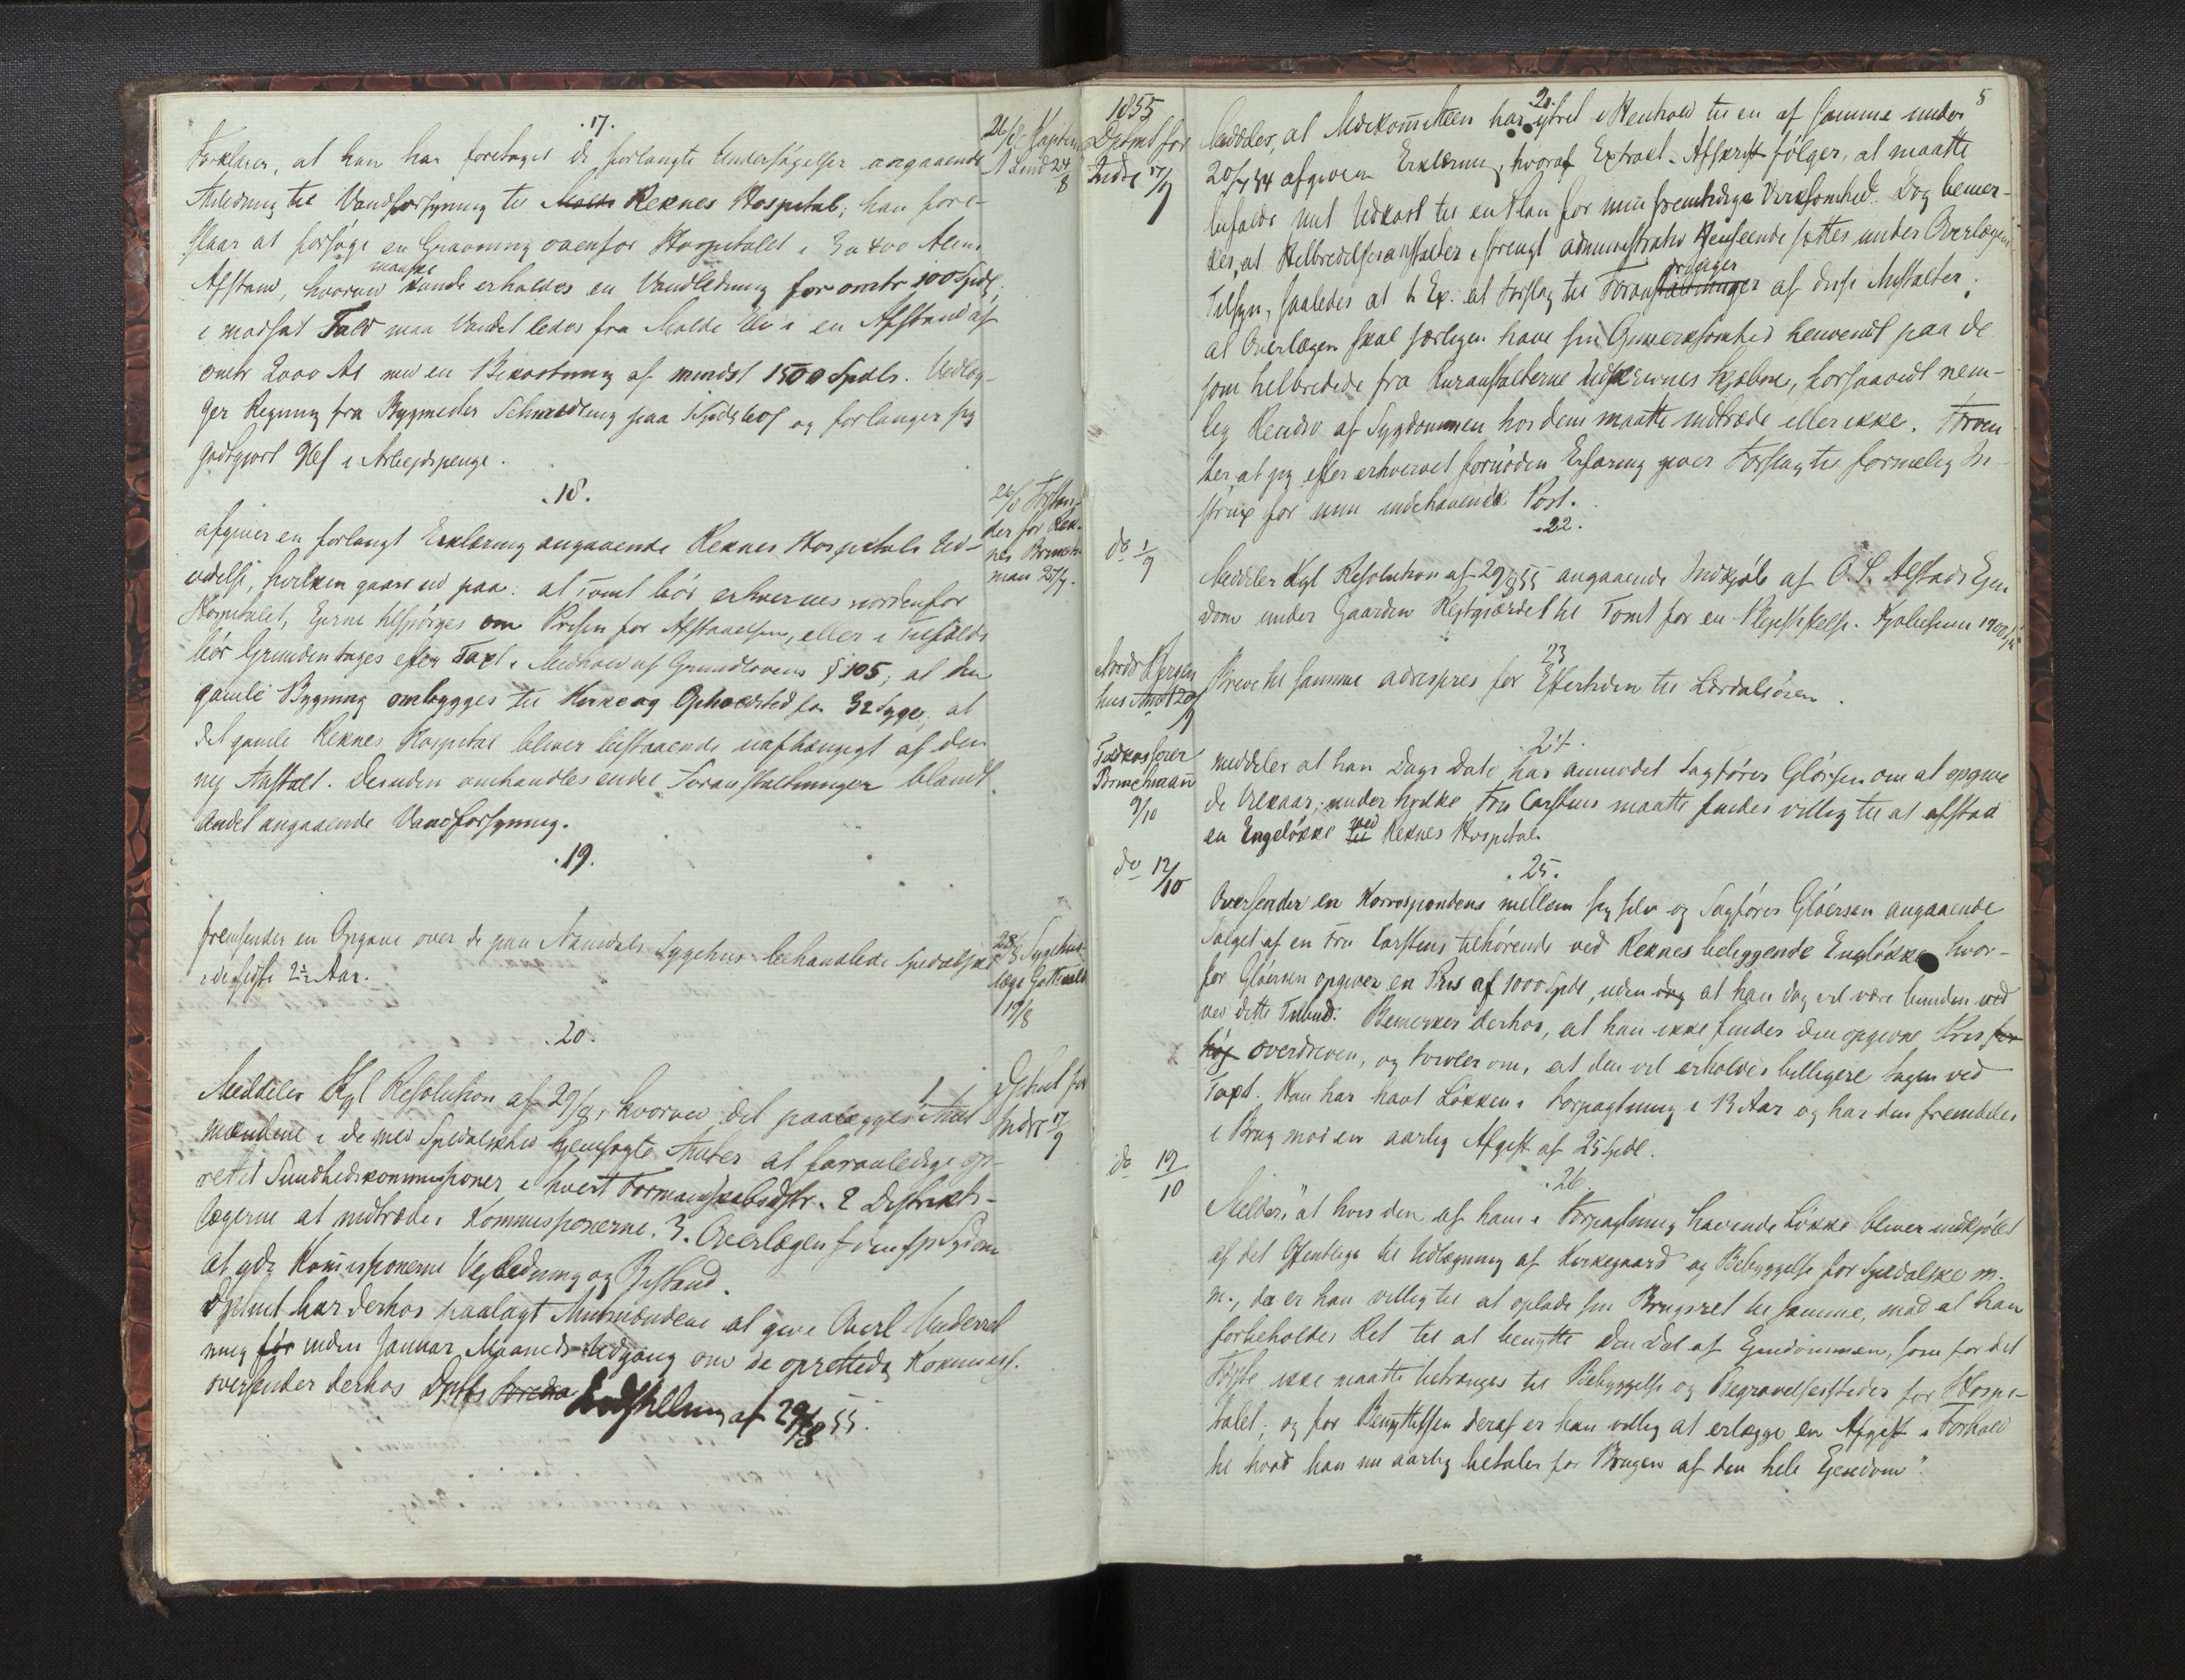 .17.
26/8 Kaptein
Forklarer, at han har foretaget de forlangte Undersøgelser angaaende
A Lund 24/8
Anledning til Vandforsyning til Molde Reknes Hospital; han fore-
slaar at forsøge en Gravning ovenfor Hospitalet i 3 a 400 Alens
Afstand, hvorved maaske kunde erholdes en Vandledning for omtr 100 Spdl;
i modsat Fald maa Vandet ledes fra Molde Elv i en Afstand af
omtr 2000 Al med en Bekostning af mindst 1500 Spdlr. Vedlæg-
ger Regning fra Bygmester Schmedling paa 1 Spdlr og forlanger sig
godtgjort i Arbejdspenge.
.18.
26/8 Forstan-
der for Rek-
nes Brinch-
man 25/8.
afgiver en forlangt Erklæring angaaende Reknes Hospitals Ud-
videlse, hvilken gaar ud paa: at Tomt bør erhverves nordenfor
Hospitalet, Ejerne tilspørges om Prisen for Afstaaelsen, eller i Tilfælde
bør Grunden tages efter Taxt i Medhold af Grundlovens § 105; at den
gamle Bygning ombygges til Kirke og Opholdsted for 32 Syge; at
det gamle Reknes Hospital bliver bestaaende uafhængigt af den
ny Anstalt. Desuden omhandles endel Foranstaltninger blandt
Andet angaaende Vandforsyning.
.19.
28/8 Sygehus-
læge Gottwald
17/8
fremsender en Opgave over de paa Namdals Sygehus behandlede Spedalske
i de sidste 2½ Aar.
.20.
Dptmt for
Indre 17/9
Meddeler Kgl Resolution af 29/8, hvorved det paalægges 1 Amt
mændene i de med Spedalskhed hjemsøgte Amter at foranledige op-
rettet Sundhedskommissioner i hvert Formandskabsdistr. 2 Distrikts-
lægerne at indtræde i Kommissionerne. 3. Overlægen f den sp Sygdom
at yde Kommissionerne Vejledning og Bistand.
Dptmt har derhos paalagt Amtmændene at give Overl Underret
ning før inden Januar Maaneds Udgang om de oprettede Kommiss.
oversender derhos Dptts Foredra Indstilling af 29/8 55.
5
1855
21.
Dptmt for
Indre 17/9
Meddeler, at Medkomitteen har ytret i Henhold til en af samme under
20/7 54 afgiven Erklæring, hvoraf Extract-Afskrift følger, at maatte
bifalde mit Udkast til en Plan for min fremtidige Virksomhed. Dog bemær-
kes, at Helbredelsesanstalter i strengt administrativ Henseende sættes under Overlægens
Tilsyn, saaledes at t. Ex. at Forslag til Foranstaltninger af disse Anstalter;
at Overlægen skal særligen have sin Opmærksomhed henvendt paa de
som helbredede fra Kuranstalterne Udskrevnes Skjæbne, hvorsaavidt nem-
lig Recidiv af Sygdommen hos dem maatte indtræde eller ikke. Forven
ter, at jeg efter erhvervet fornøden Erfaring giver Forslag til formelig In
strux for min indehavende Post.
.22.
do 1/9
Meddeler Kgl Resolution af 29/8 55 angaaende Indkjøb af O. S. Alstads Ejen
dom under Gaarden til Tomt for en Plejestiftelse. Kjøbesum 1700
23
Nordre Bergen
hus Amt 20/9
Breve til samme adresseres for Eftertiden til Lærdalsøren.
24.
Toldkasserer
Brinchmann
9/10
meddeler at han Dags Dato har anmodet Sagfører Gløersen om at opgive
de Vilkaar, under hvilke Fru Carstens maatte findes villig til at afstaa
en Engeløkke til ved Reknes Hospital.
.25.
do 12/10
Oversender en Korrespondens mellem sig selv og Sagfører Gløersen angaaende
Salget af en Fru Carstens tilhørende ved Reknes beliggende Engeløkke, hvor-
for Gløersen opgiver en Pris af 1000 Spdl, uden dog at han dog vil være bunden ved
ved dette Tilbud. Bemerker derhos, at han ikke finder den opgivne Pris for
høj overdreven, og tvivler om, at den vil erholdes billigere tagen ved
Taxt. Han har havt Løkken i Forpagtning i 13 Aar og har den fremdeles
i Brug mod en aarlig Afgift af 25 Spdl.
.26.
do 19/10
Melder: "at hvis den af ham i Forpagtning havende Løkke bliver indkjøbt
af det Offentlige til Udlægning af Kirkegaard og Bebyggelse for Spedalske m.
m., da er han villig til at oplade sin Brugsret til samme, mod at han
forbeholdes Ret til at benytte den Del af Ejendommen, som for det
Første ikke maatte tiltrænges til Bebyggelse og Begravelsessteder for Hospi-
talet; og for Benyttelsen deraf er han villig at erlægge en Afgift i Forhold
til hvad han nu aarlig betaler for Brugen af den hele Ejendom".